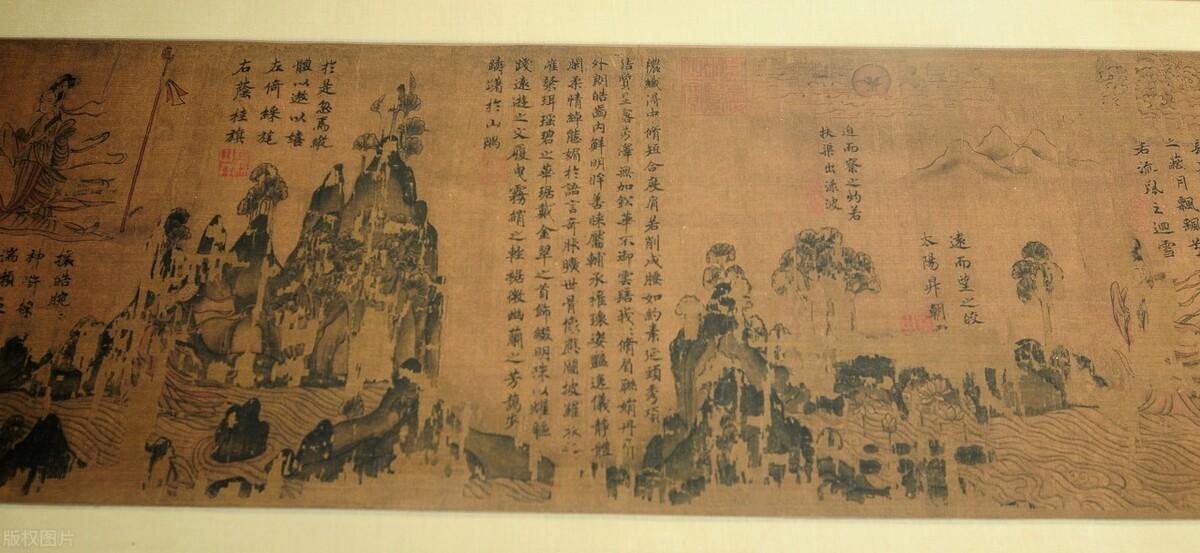 之蔽月飄颻兮
若流風之迴雪
遠而望之皎
太陽昇朝
迫而察之灼若
扶渠出淥波
穠纖得中脩短合度肩若削成腰如約素延頸秀項
皓質呈露芳澤無加鉛華不御雲髻峩〻脩眉聯娟丹
外朗皓齒內鮮明眸善睞靨輔承權瓌姿豔逸儀靜體
閑柔情綽態媚於語言奇服曠世骨像應圖披羅衣
璀粲珥瑤碧之華琚戴金翠之首飾綴明珠以耀軀
踐遠遊之文履曳霧綃之輕裾微幽蘭之芳藹步
躊躇於山隅
於是忽焉縱
體以遨以嬉
左倚綵旄
右蔭桂旗
攘皓腕
神滸採
湍瀨
版权图片